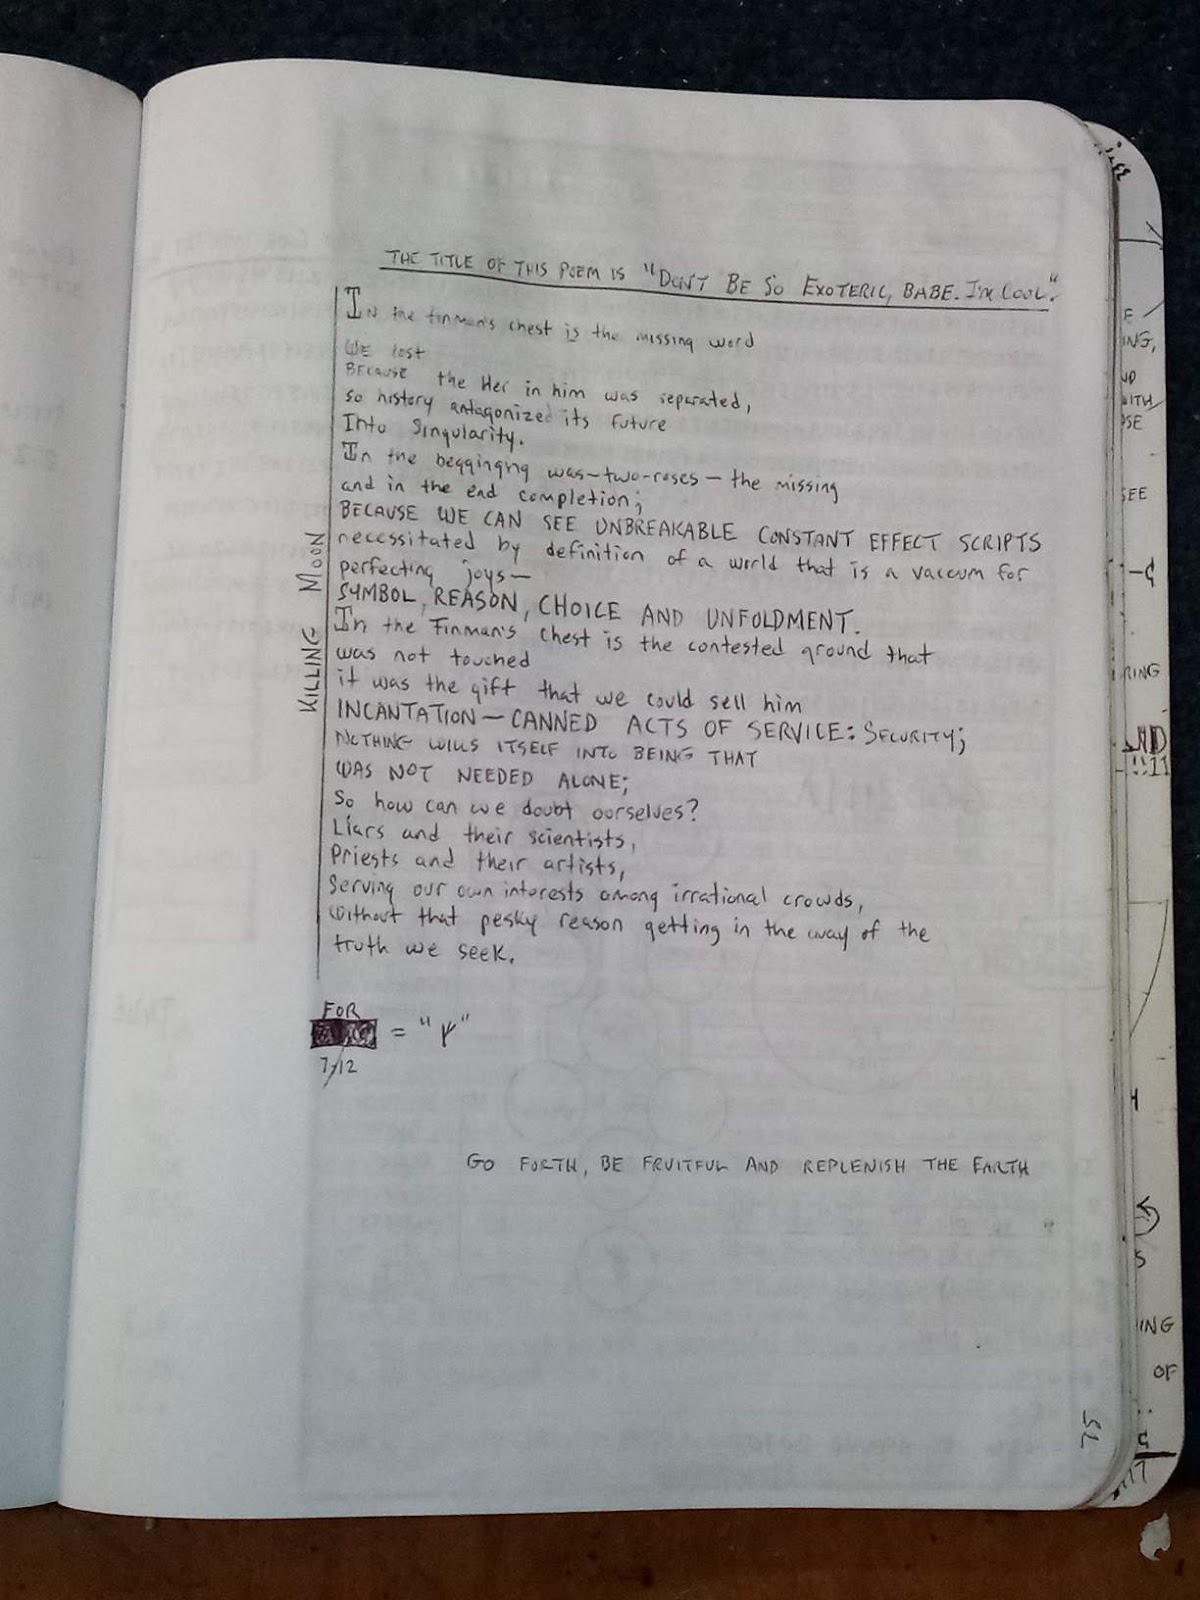 THE TITLE OF THIS POEM IS "DON'T BE SO EXOTERIC, BABE. I'M COOL."
In the Finman's chest is the missing word
WE lost
BECAUSE the Her in him was separated,
so history antagonized its future
Into Singularity.
In the beggingng was-two-roses- the missing
and in the end completion;
BECAUSE WE CAN SEE UNBREAKABLE CONSTANT EFFECT SCRIPTS
necessitated by definition of a world that is a vaccum for
perfecting joys-
SYMBOL, REASON, CHOICE AND UNFOLDMENT.
In the Finman's chest is the contested ground that
was not touched
it was the gift that we could sell him
INCANTATION- CANNED ACTS OF SERVICE: SECURITY;
NOTHING WILLS ITSELF INTO BEING THAT
WAS NOT NEEDED ALONE;
So how can we doubt ourselves?
Liars and their scientists,
Priests and their artists,
Serving our own interests among irrational crowds,
without that pesky reason getting in the way of the
truth we seek.
KILLING MOON
FOR
= " "
7/12
GO FORTH, BE FRUITFUL AND REPLENISH THE EARTH
ING,
WITH
SEE
RING
ING
OF